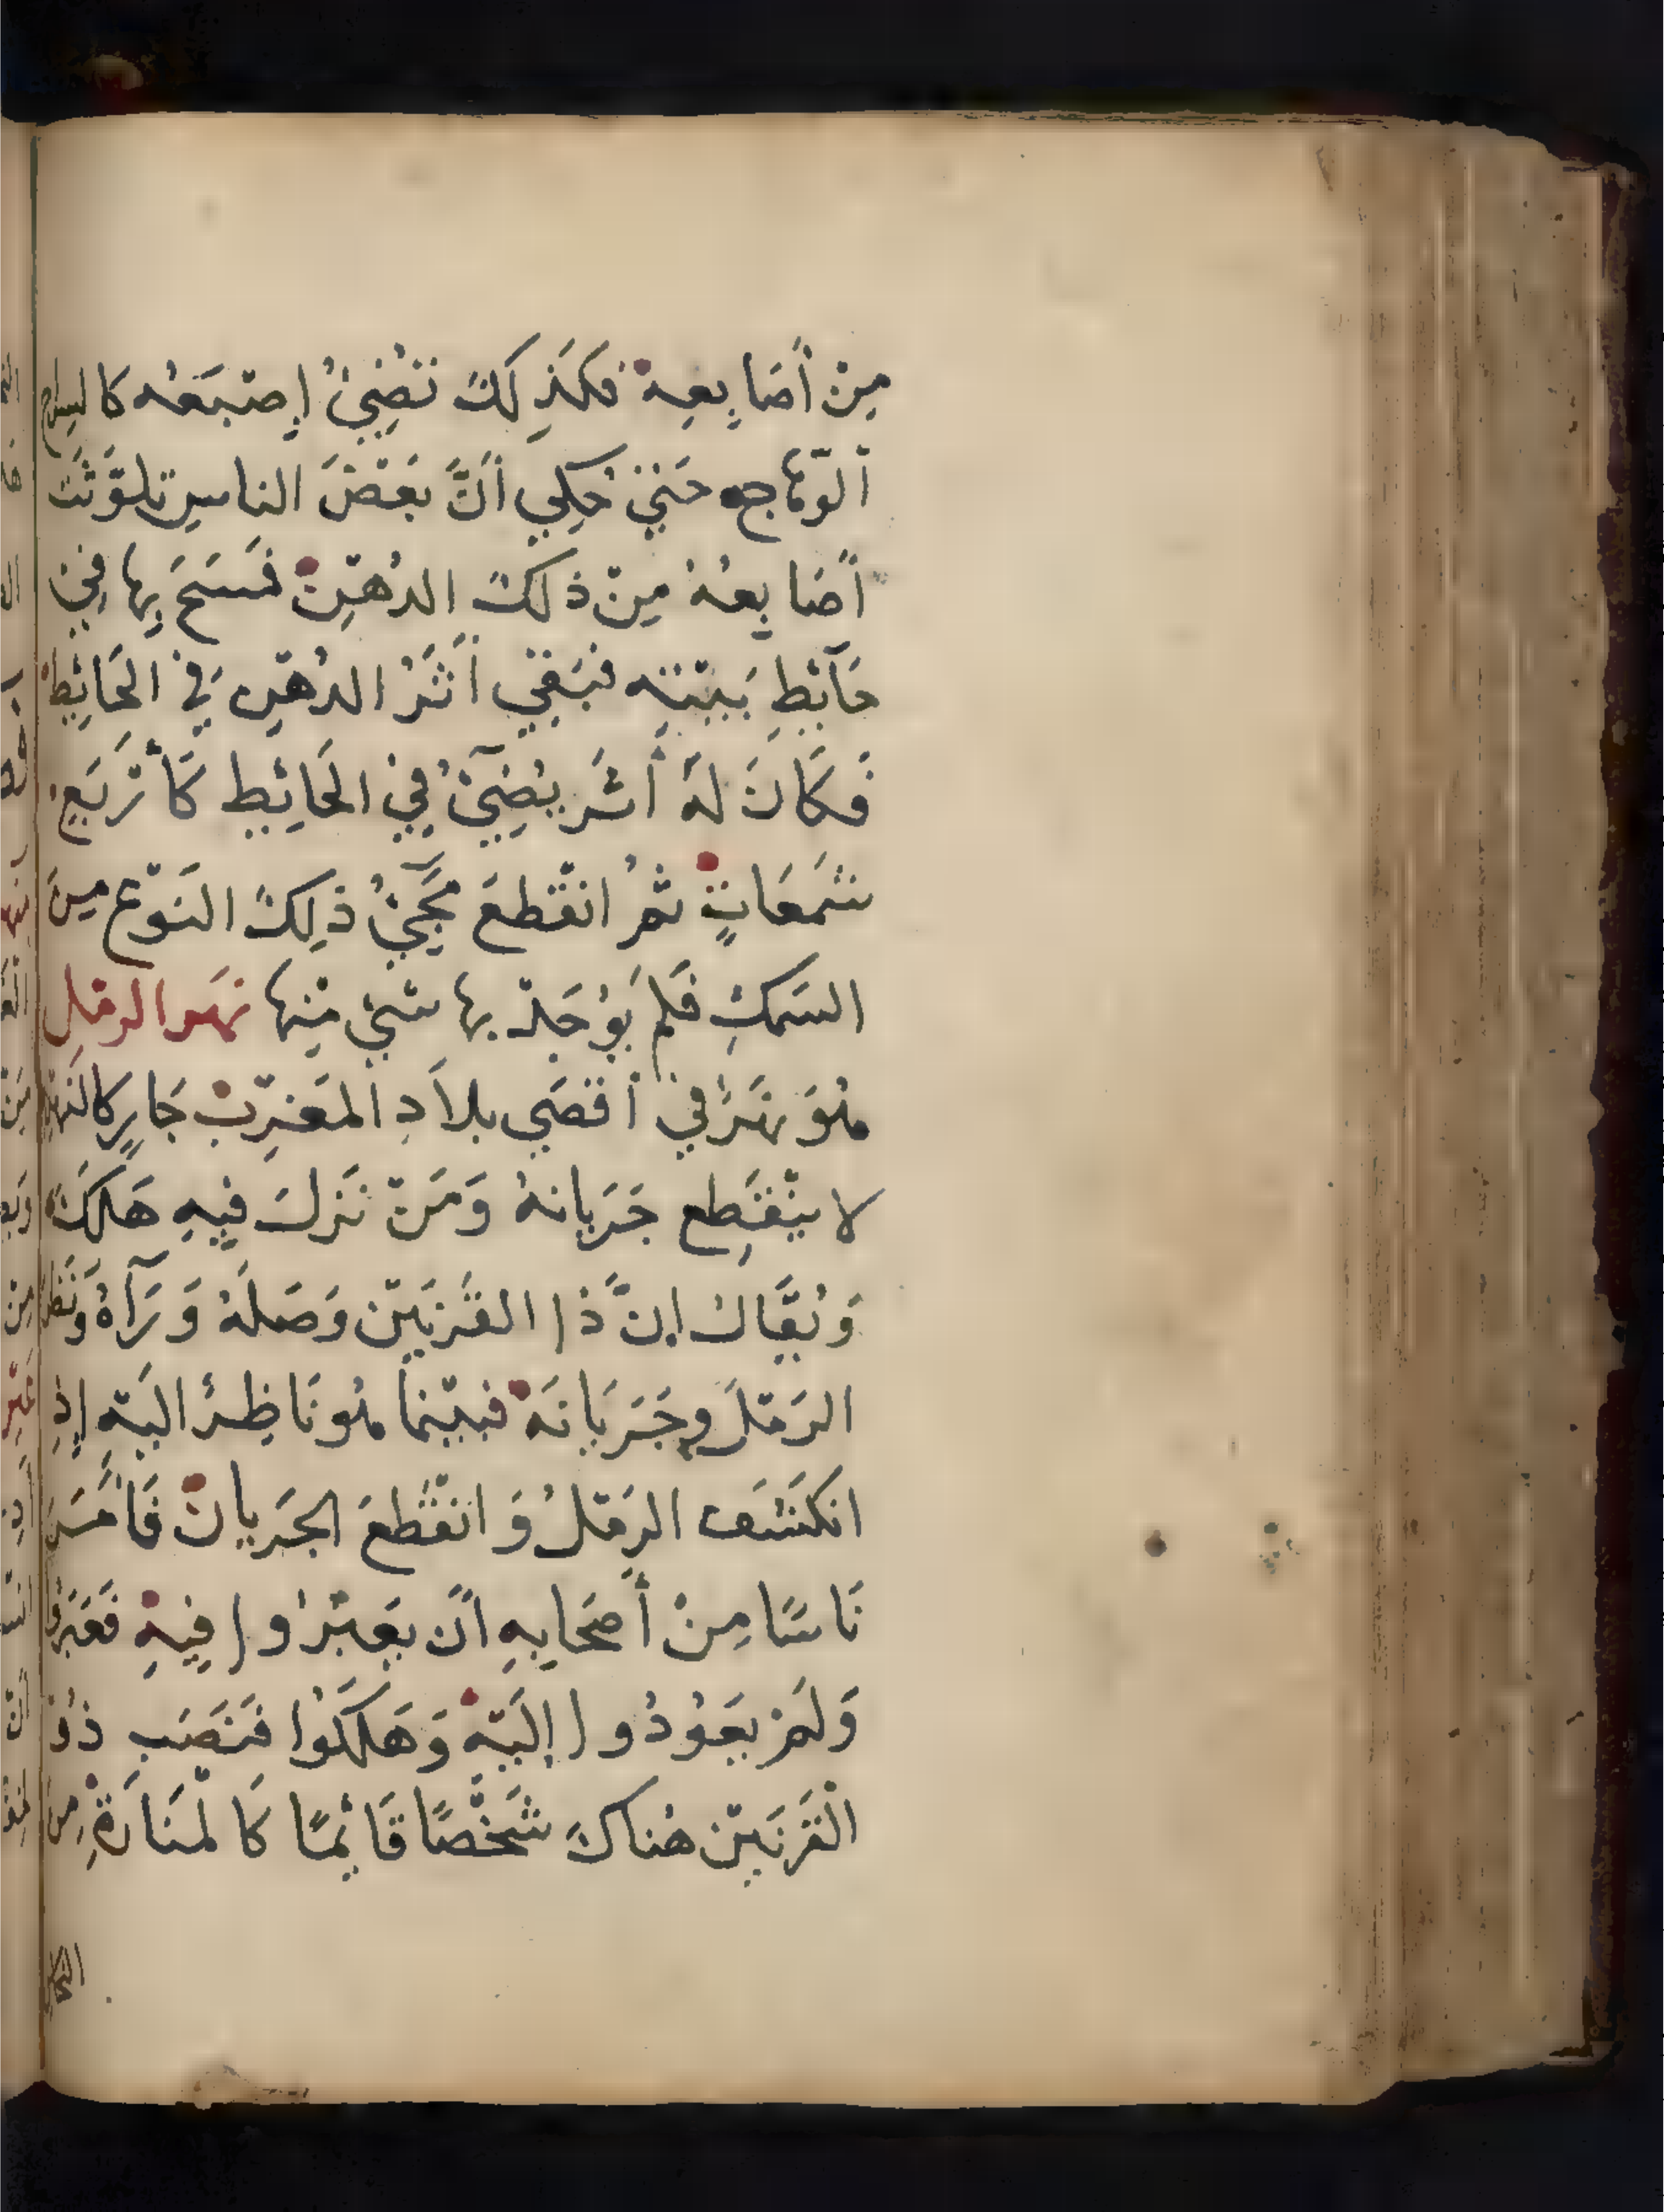 مِنْ أَصَابِعِهْ فَكَذٰلِكَ تُضِيْئُ إِصْبَعُه كَالسِرَاج
اَلْوَهَّاج حَتّي حُكِي أَنَّ بَعْضَ الناسِ تلوَّثَتْ
أَصَابِعُهُ مِنْ ذلكَ الدُهْنِ فَمَسَحَ بِها فِيْ
حَآئِطِ بَيْتِه فَبَقِيَ اَثَرُ الدُهْنِ فِيْ الحَائِطْ
فَكَانَ لَهُ أَثَر يُضِيْٓئُ فِيْ الحَائِطِ كَأَرْبَعِ
شَمَعَاتٍ ثُمَّ انْقَطَعَ مَجِيْٓئُ ذٰلِكَ النَوْعِ مِنَ
السَمَكِ فَلَمْ يُوْجَدْ بها شئ مِنها نهر الرمل
هُوَ نَهَر فِيْ أَقْصَي بلاَدِ المَغْرِبْ جَارٍ كالنَهْرِ
لا يَنْقَطِع جَرَيَانهُ وَمَنْ نَزَلَ فِيهِ هَلَكَ
وَيُقَال إنَّ ذا القَرْنَيْن وَصَلَهُ وَرَآهُ وَنَظَرَ
الرَمْلَ وجَرَيَانَهْ فبينما هُو نَاظِرٌ الَيْهِ إِذِ
انكَشَف الرَمْلُ وَانْقَطَعَ الجَرَيان فَأَمَرَ
نَاسًا مِنْ أَصْحَابِهِ أَن يَعْبُرُوا فِيهِ فَعَبَرُوا
وَلَمْ يَعُوْدُوا إلَيْهْ وَهَلَكُوْا فَنَصَب ذُوْ
الْقَرْنَيْن هُنَاكَ شَخْصًا قَائِمًا كَالْمَنَارَةِ مِنَ